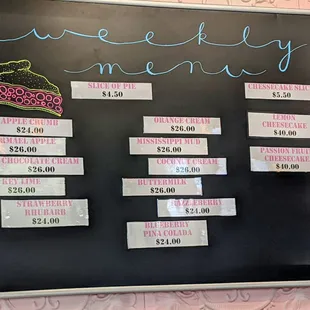 weekly
menu
SLICE OF PIE
$4.50
CHEESECAKE SLICE
$5.50
APPLE CRUMB
$24.00
CARMEL APPLE
$26.00
CHOCOLATE CREAM
$26.00
KEY LIME
$26.00
STRAWBERRY
RHUBARB
$24.00
ORANGE CREAM
$26.00
MISSISSIPPI MUD
$26.00
COCONUT CREAM
$26.00
BUTTERMILK
$26.00
RAZZLEBERRY
$24.00
BLUEBERRY
PINA COLADA
$24.00
LEMON
CHEESECAKE
$40.00
PASSION FRUIT
CHEESECAKE
$40.00